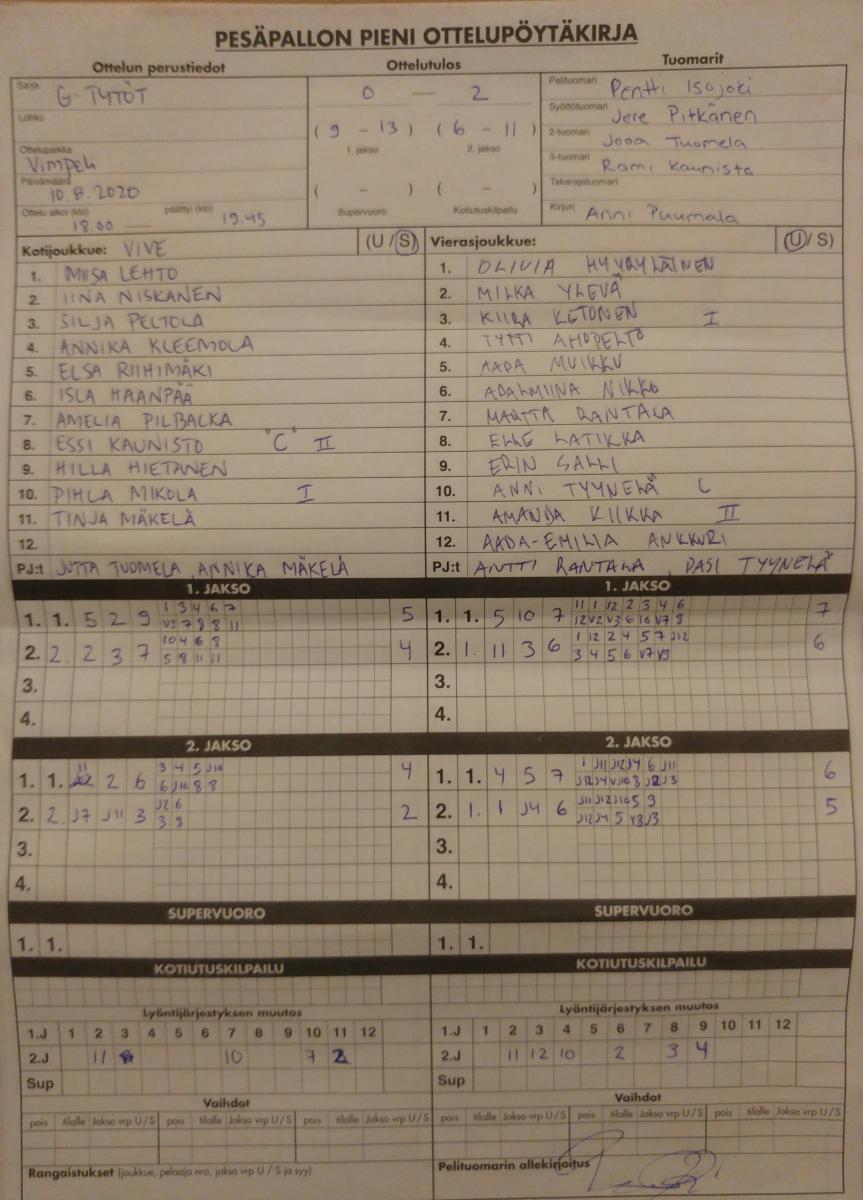 PESÄPALLON PIENI OTTELUPÖYTÄKIRJA
Ottelun perustiedot Ottelutulos Tuomarit
Sarja G-TYTÖT
Lohko
Ottelupaikka Vimpeli
Päivämäärä 10.8.2020
Ottelu alkoi (klo) 18.00 — päättyi (klo) 19.45
0 — 2
(9 – 13) (6 – 11)
1. jakso 2. jakso
( – ) ( – )
Supervuoro Kotiutuskilpailu
Pelituomari Pentti Isojoki
Syöttötuomari Jere Pitkänen
2-tuomari Jooa Tuomela
3-tuomari Rami Kaunisto
Takarajatuomari
Kirjuri Anni Puumala
Kotijoukkue: VIVE (U/S)
1. MIISA LEHTO
2. IINA NISKANEN
3. SILJA PELTOLA
4. ANNIKA KLEEMOLA
5. ELSA RIIHIMÄKI
6. ISLA HAANPÄÄ
7. AMELIA PILBACKA
8. ESSI KAUNISTO "C" II
9. HILLA HIETANEN
10. PIHLA MIKOLA I
11. TINJA MÄKELÄ
12.
PJ:t JUTTA TUOMELA, ANNIKA MÄKELÄ
Vierasjoukkue: (U/S)
1. OLIVIA HYYRYLÄINEN
2. MILKA YLEVÄ
3. KIIRA KETONEN I
4. TYTTI AHOPELTO
5. AADA MUIKKU
6. ADALMIINA NIKKO
7. MARTTA RANTALA
8. ELLE LATIKKA
9. ERIN SALLI
10. ANNI TYYNELÄ C
11. AMANDA KIIKKA II
12. AADA-EMILIA ANKKURI
PJ:t ANTTI RANTALA, PASI TYYNELÄ
1. JAKSO
1. 1. 5 2 9 1 3 4 6 7 5
V3 7 8 8 11
2. 2. 2 3 7 10 4 6 8 4
5 8 11 11
3.
4.
1. JAKSO
1. 1. 5 10 7 11 1 12 2 3 4 6 7
12 V2 V3 6 10 V7 8
2. 1. 11 3 6 1 12 2 4 5 7 J12 6
3 4 5 6 V7 V9
3.
4.
2. JAKSO
1. 1. 11 2 6 3 4 5 J10 4
6 J10 8 8
2. 2. J7 J11 3 J2 6 2
3 8
3.
4.
2. JAKSO
1. 1. 4 5 7 1 J11 J12 J4 6 J11 6
J12 J4 V10 3 J2 J3
2. 1. 1 J4 6 J11 J12 J10 5 9 5
J12 J4 5 V3 J3
3.
4.
SUPERVUORO
1. 1.
SUPERVUORO
1. 1.
KOTIUTUSKILPAILU
KOTIUTUSKILPAILU
Lyöntijärjestyksen muutos
1.J 1 2 3 4 5 6 7 8 9 10 11 12
2.J 11 8 10 7 2
Sup
Lyöntijärjestyksen muutos
1.J 1 2 3 4 5 6 7 8 9 10 11 12
2.J 11 12 10 2 3 4
Sup
Vaihdot
pois tilalle Jakso vrp U/S pois tilalle Jakso vrp U/S pois tilalle Jakso vrp U/S
Vaihdot
pois tilalle Jakso vrp U/S pois tilalle Jakso vrp U/S pois tilalle Jakso vrp U/S
Rangaistukset (joukkue, pelaaja nro, jakso vrp U/S ja syy)
Pelituomarin allekirjoitus